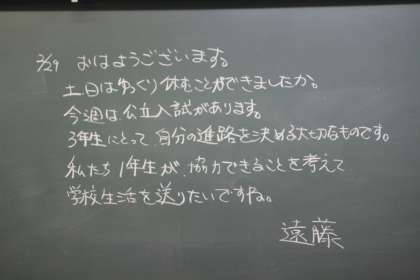 2/29 おはようございます。
土日はゆっくり休むことができましたか。
今週は公立入試があります。
3年生にとって、自分の進路を決める大切なものです。
私たち1年生が、協力できることを考えて
学校生活を送りたいですね。
遠藤